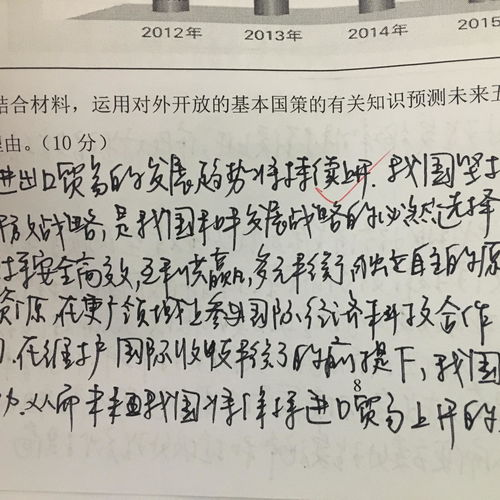 2012年 2013年 2014年 2015
结合材料，运用对外开放的基本国策的有关知识预测未来五
理由。(10 分)
进出口贸易的发展趋势将持续上升. 我国坚持
开放战略，是我国和平发展战略的必然选择
坚持安全高效，互利共赢，多元平衡 自主的原
资源，在更广领域上参与国际经济科技合作
在维护国际收支平衡的前提下，我国
8
力.从而未来我国将保持进口贸易上升的